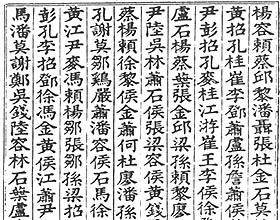 楊容蔡賴黎潘聶張杜金石莫
黄招孔桂崔李鄧蕭盧孫詹蕭
尹彭招孔麥桂江游崔王李侯徐
盧石楊蔡葉張金邱梁孫賴黎廖
尹陸吳林蕭石侯張梁容侯黄錢
蔡楊賴徐黎侯金蕭何杜廖潘
孔謝莫鄒嚴蕭潘容侯石馬侯
黄江尹麥馮賴楊鄒張鄒孫梁招
彭孔李招鄧徐馮金黄侯江蕭尹
馬潘莫謝鄭吳錢陸容林石葉盧